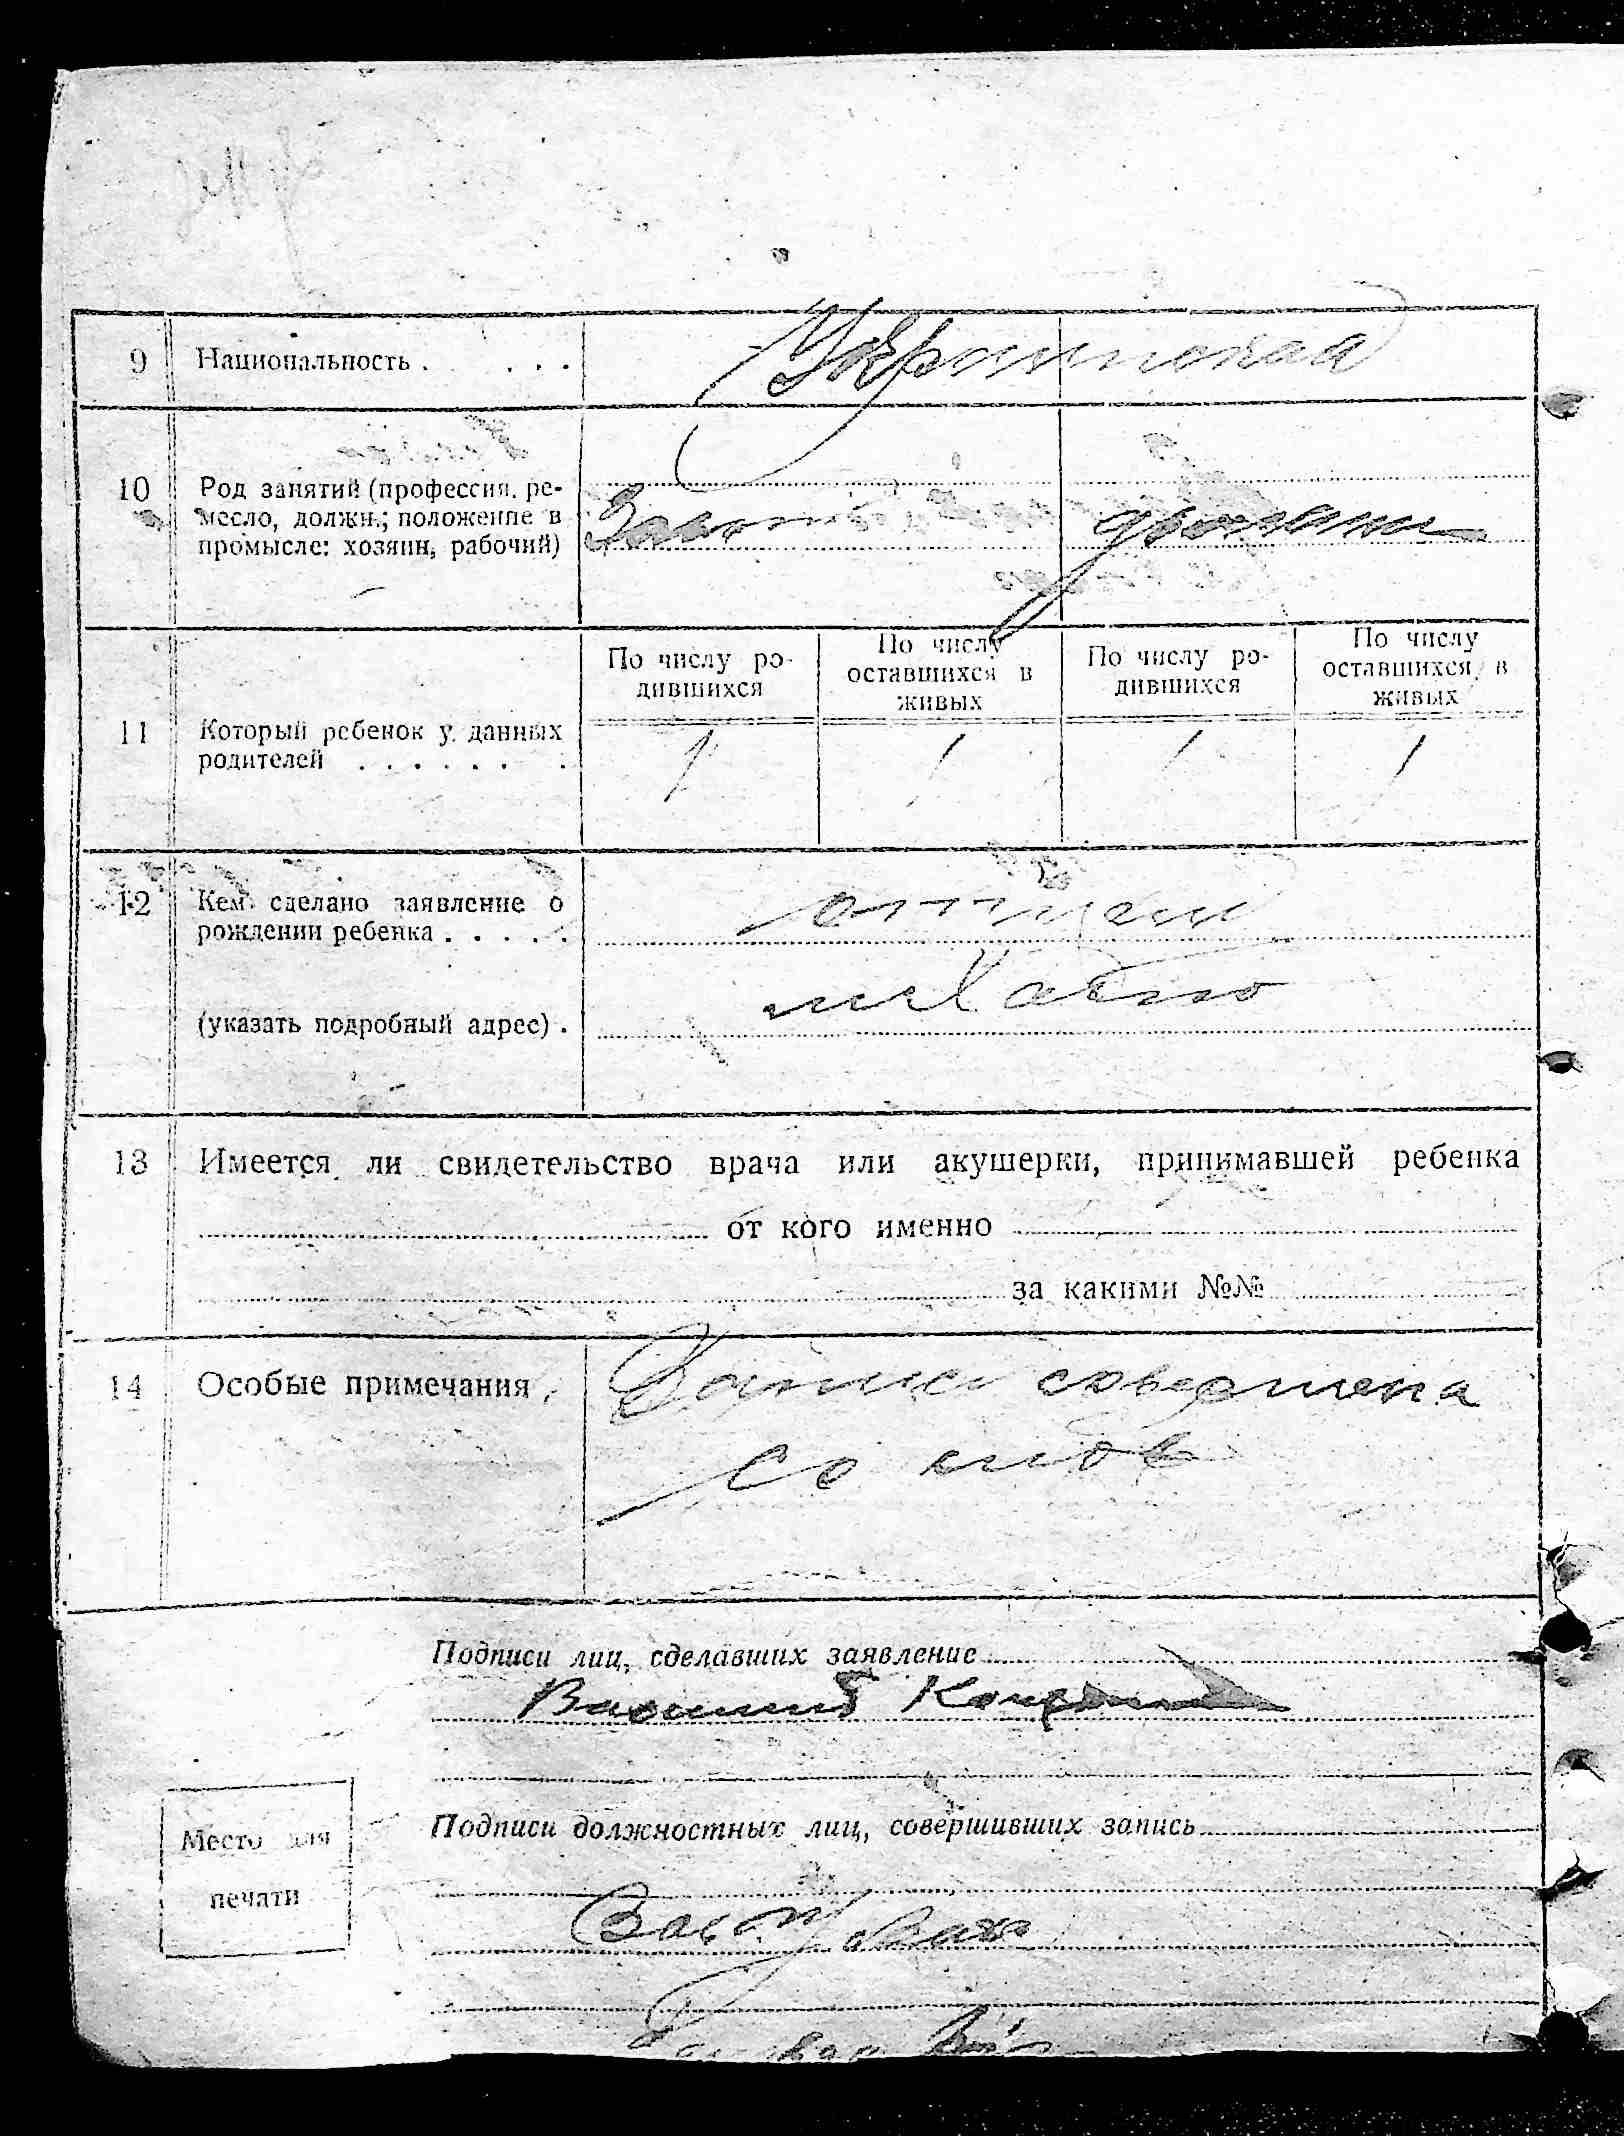 9 Национальность . . . . Украинская
10 Род занятий (профессия, ре-
месло, должн.; положение в
промысле: хозяин, рабочий)
По числу ро-
дившихся
По числу
оставшихся в
живых
По числу ро-
дившихся
По числу
оставшихся в
живых
11 Который ребенок у данных
родителей . . . . . . .
1 1 1 1
12 Кем сделано заявление о
рождении ребенка . . . . . отцем
(указать подробный адрес) .
13 Имеется ли свидетельство врача или акушерки, принимавшей ребенка
от кого именно
за какими №№
14 Особые примечания . Запись совершена
со слов
Подписи лиц, сделавших заявление
Подписи должностных лиц, совершивших запись
Место для
печати